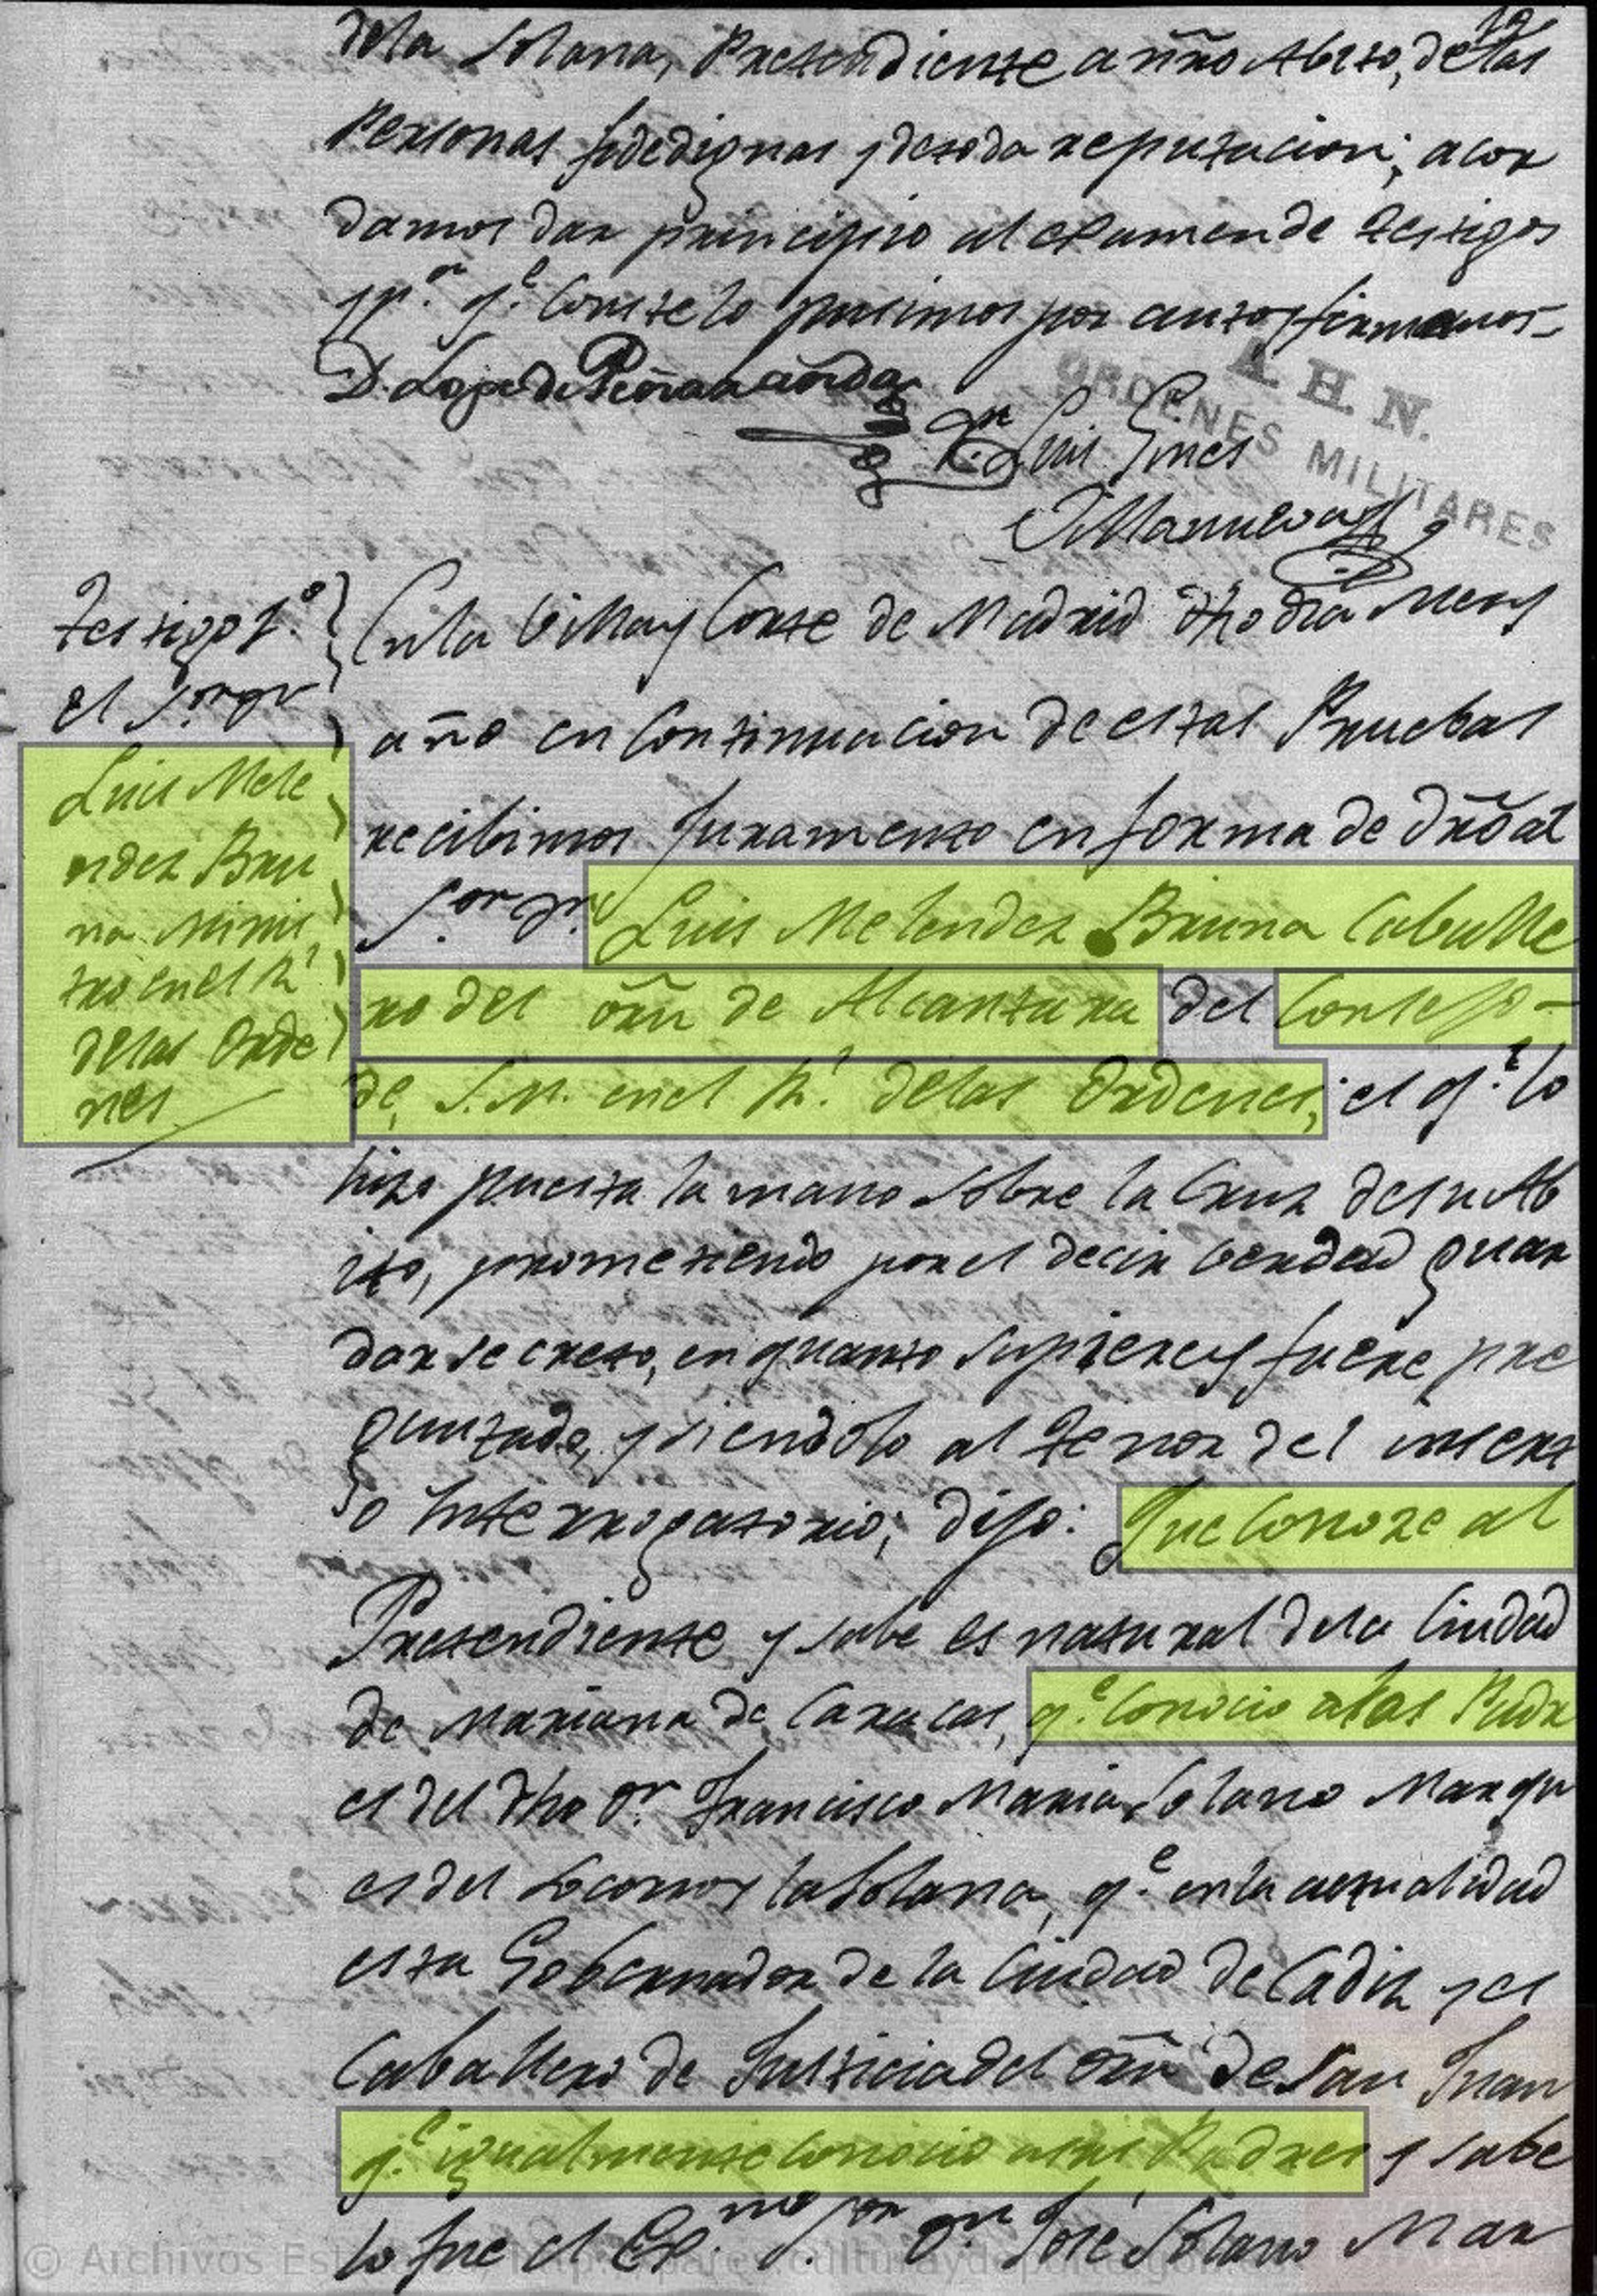 dela Solana, Pretendiente a ñro Abito, de las
12
Personas fidedignas y de toda reputacion; acor
damos dar principio al examen de testigos
y p.ª q.e conste lo pusimos por auto y firmamos-
D. Lope de Peñaranda
Fr. Dn Luis Gines
Villanueva
A. H. N.
ORDENES MILITARES
Testigo 1.º
el S.or Dn
Luis Mele
ndez Bru
na Minis
tro en el R.l
delas Orde
nes
En la Villa y Corte de Madrid dho dia Mes y
año en Continuacion de estas Pruebas
recibimos Juramento en forma de dro al
S.or Dn. Luis Melendez Bruna Caballe
ro del orn de Alcantara del Consejo-
de S.M. en el R.l delas Ordenes; el q.e lo
hizo puesta la mano sobre la Cruz de su Ab
ito, prometiendo por el decir verdad guar
dar secreto, en quanto supiere y fuere pre
guntado, y siendolo al tenor del insert
o Interrogatorio; dijo: Que Conoze al
Pretendiente y sabe es natural dela Ciudad
de Mariana de Caracas, q.e conocio alos Padr
es del dho Dr. Francisco Maria Solano Marqu
es del Socorro y la Solana, q.e en la actualidad
esta Gobernador de la Ciudad de Cadiz y es
Caballero de Justicia del orn de San Juan
q.e igualmente conocio a sus Padres y sabe
lo fue el Ex.mo S.or Dn. José Solano Mar
© Archivos Estatales, http://pares.culturaydeporte.gob.es